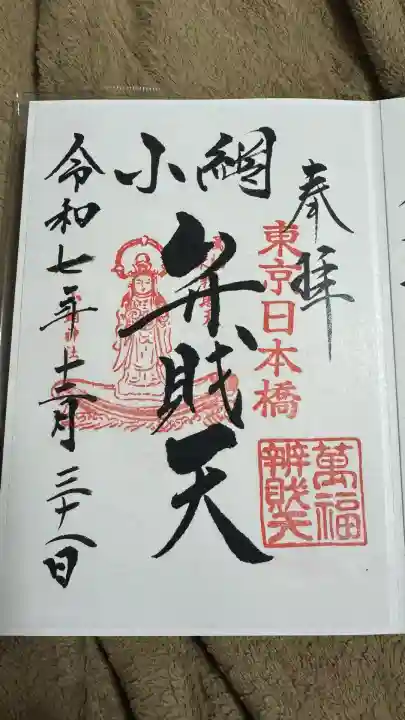 奉拝
東京日本橋
萬福
辨財天
小網
弁財天
令和七年十二月
日